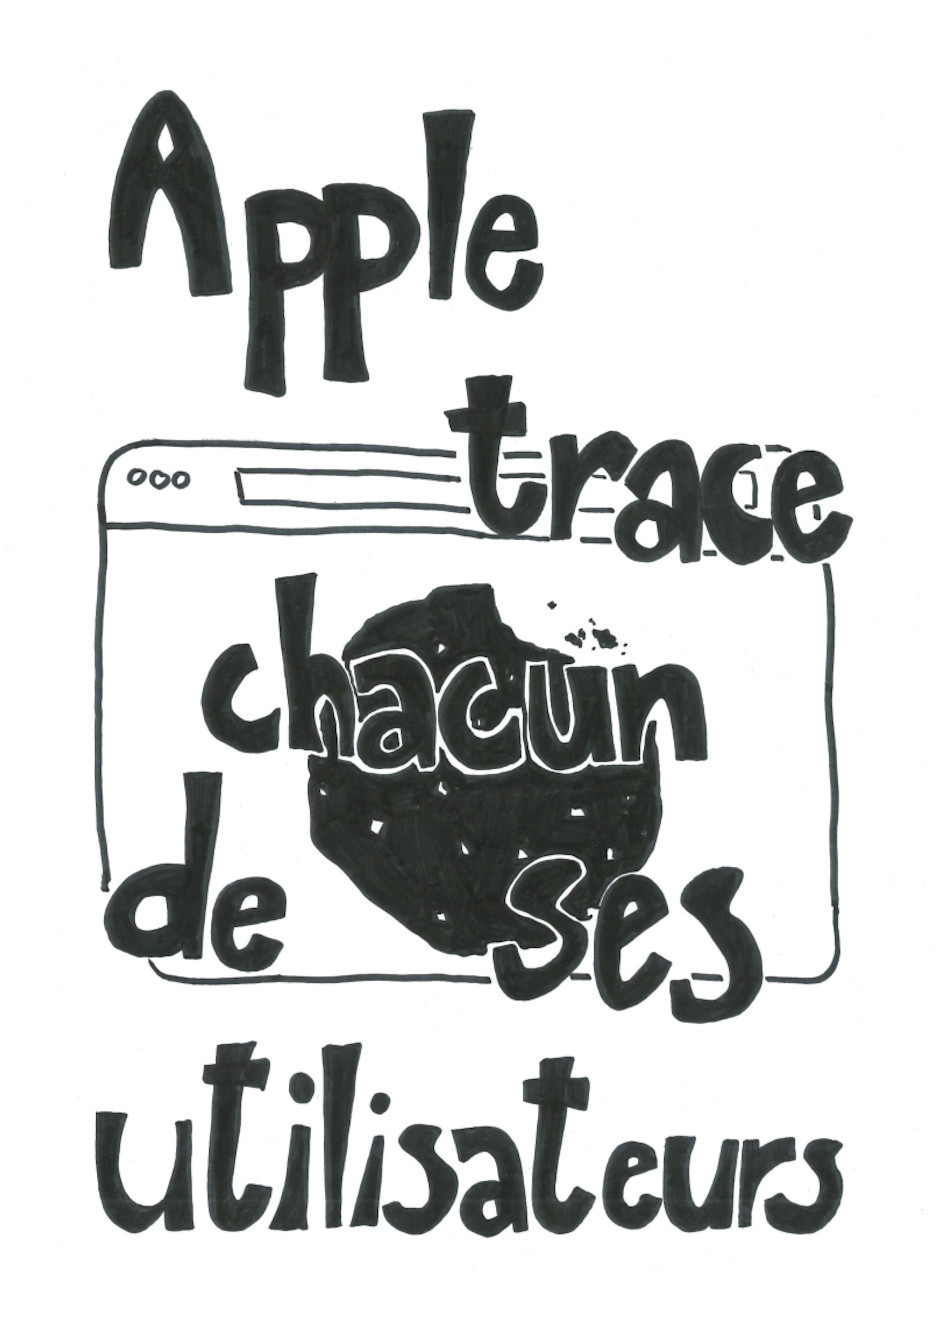 Apple
trace
chacun
de ses
utilisateurs